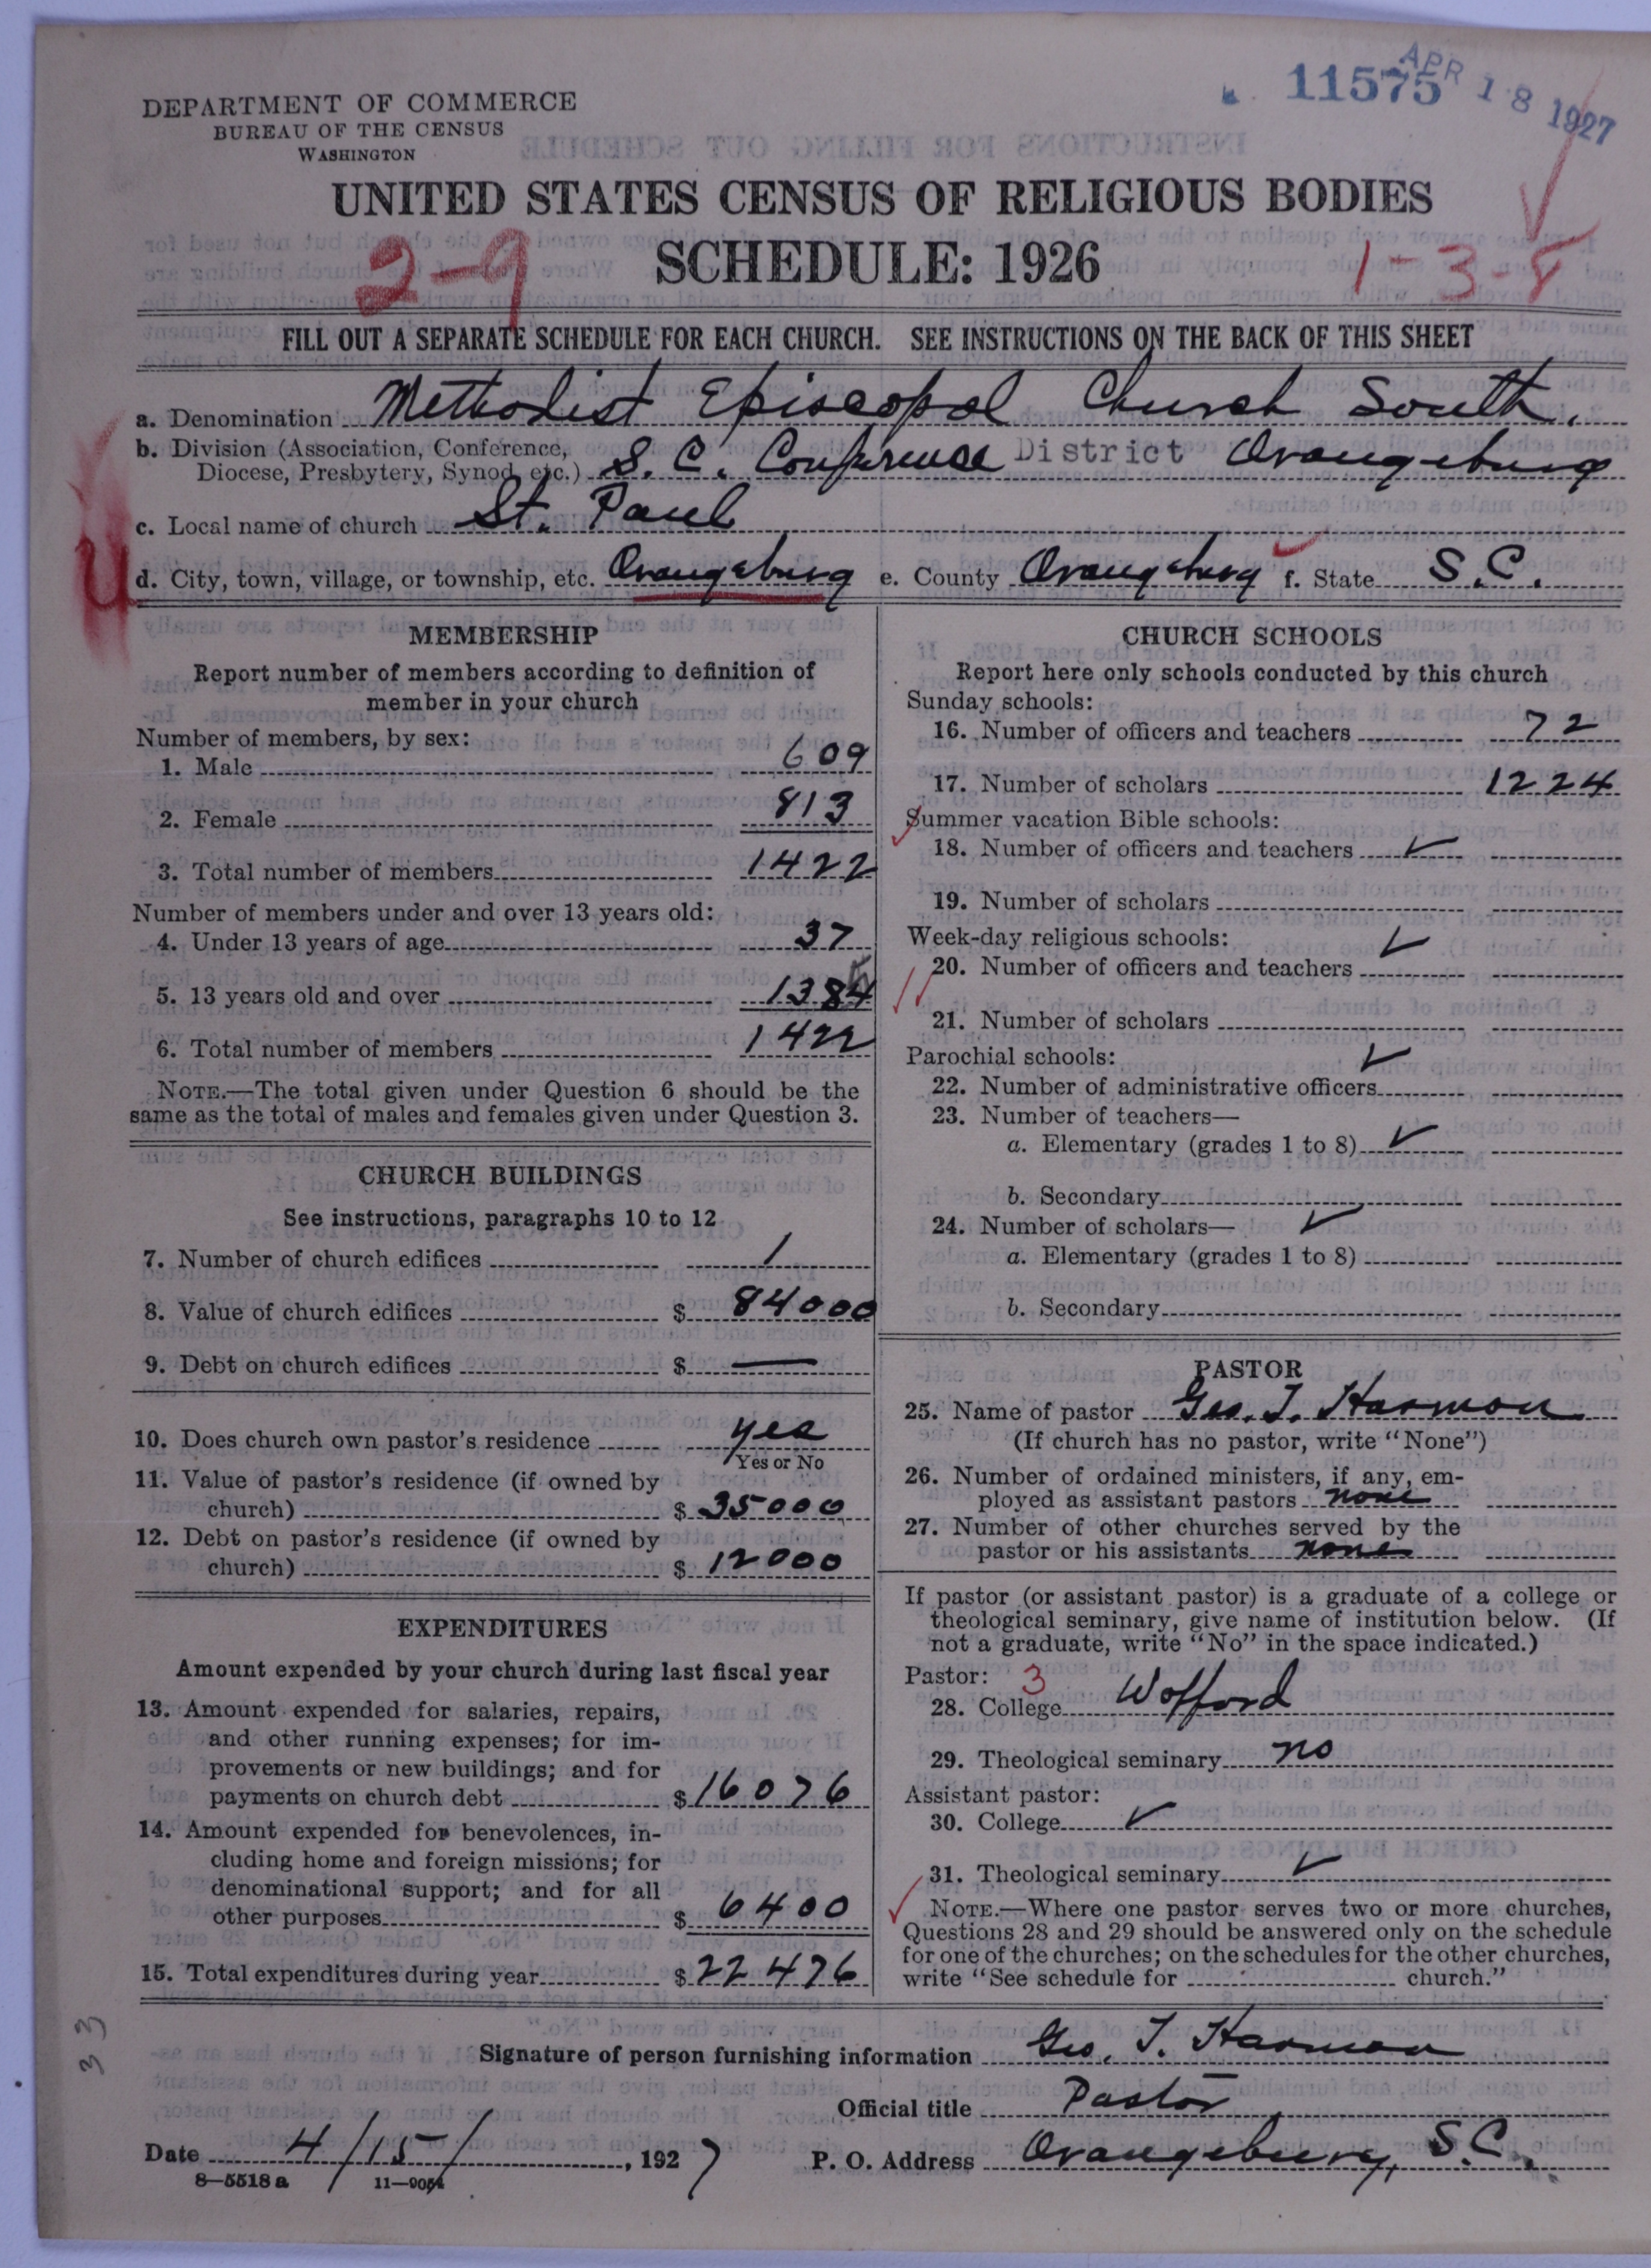 DEPARTMENT OF COMMERCE
BUREAU OF THE CENSUS
WASHINGTON
11575
APR 18 1927
UNITED STATES CENSUS OF RELIGIOUS BODIES
SCHEDULE: 1926
2-9
1-3-8
FILL OUT A SEPARATE SCHEDULE FOR EACH CHURCH. SEE INSTRUCTIONS ON THE BACK OF THIS SHEET
a. Denomination Methodist Episcopal Church South.
b. Division (Association, Conference,
Diocese, Presbytery, Synod, etc.) S. C. Conference District Orangeburg
c. Local name of church St. Paul
d. City, town, village, or township, etc. Orangeburg e. County Orangeburg f. State S.C.
U
MEMBERSHIP
Report number of members according to definition of
member in your church
Number of members, by sex:
1. Male 609
2. Female 813
3. Total number of members 1422
Number of members under and over 13 years old:
4. Under 13 years of age 37
5. 13 years old and over 1384 5
6. Total number of members 1422
NOTE.—The total given under Question 6 should be the
same as the total of males and females given under Question 3.
CHURCH BUILDINGS
See instructions, paragraphs 10 to 12
7. Number of church edifices 1
8. Value of church edifices $ 84000
9. Debt on church edifices $ —
10. Does church own pastor's residence yes
Yes or No
11. Value of pastor's residence (if owned by
church) $ 35000
12. Debt on pastor's residence (if owned by
church) $ 12000
EXPENDITURES
Amount expended by your church during last fiscal year
13. Amount expended for salaries, repairs,
and other running expenses; for im-
provements or new buildings; and for
payments on church debt $ 16076
14. Amount expended for benevolences, in-
cluding home and foreign missions; for
denominational support; and for all
other purposes $ 6400
15. Total expenditures during year $ 22476
CHURCH SCHOOLS
Report here only schools conducted by this church
Sunday schools:
16. Number of officers and teachers 72
17. Number of scholars 1224
Summer vacation Bible schools:
18. Number of officers and teachers ✓
19. Number of scholars
Week-day religious schools: ✓
20. Number of officers and teachers
21. Number of scholars
Parochial schools: ✓
22. Number of administrative officers
23. Number of teachers—
a. Elementary (grades 1 to 8) ✓
b. Secondary
24. Number of scholars— ✓
a. Elementary (grades 1 to 8)
b. Secondary
PASTOR
25. Name of pastor Geo. T. Harmon
(If church has no pastor, write "None")
26. Number of ordained ministers, if any, em-
ployed as assistant pastors none
27. Number of other churches served by the
pastor or his assistants none
If pastor (or assistant pastor) is a graduate of a college or
theological seminary, give name of institution below. (If
not a graduate, write "No" in the space indicated.)
Pastor: 3
28. College Wofford
29. Theological seminary no
Assistant pastor:
30. College ✓
31. Theological seminary ✓
NOTE.—Where one pastor serves two or more churches,
Questions 28 and 29 should be answered only on the schedule
for one of the churches; on the schedules for the other churches,
write "See schedule for church."
33
Signature of person furnishing information Geo. T. Harmon
Official title Pastor
Date 4/15/, 1927 P. O. Address Orangeburg, S.C.
8—5518 a 11—9054